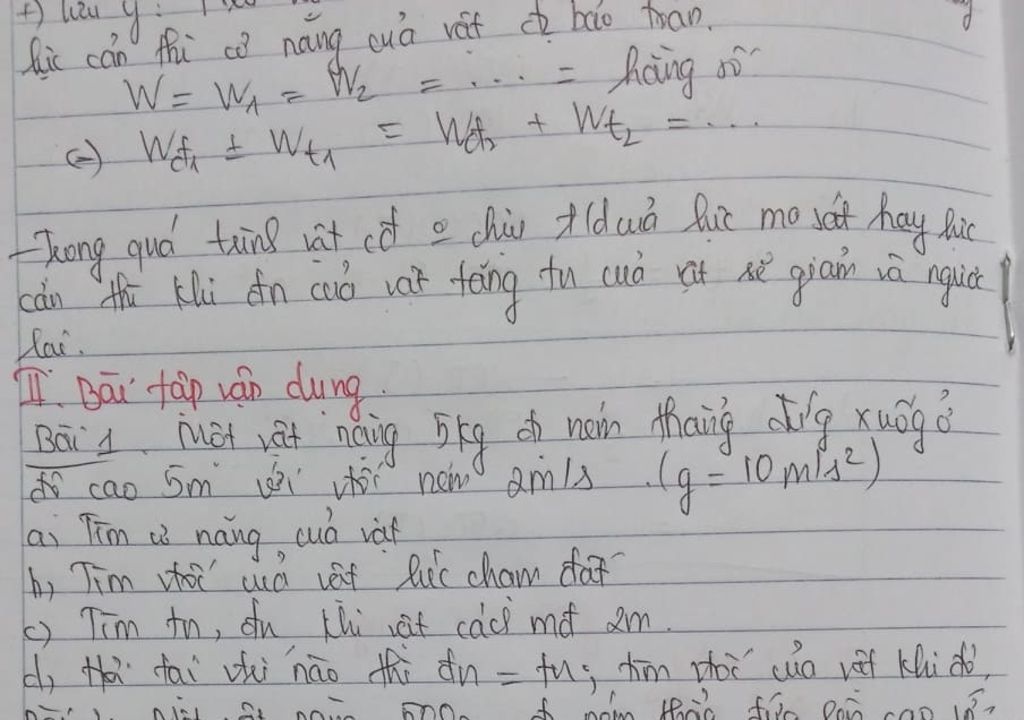 +) Lưu ý:
lực cản thì cơ năng của vật đc bảo toàn.
W = W1 = W2 = .... = hằng số
(=) Wđ1 + Wt1 = Wđ2 + Wt2 = ...
- Trong quá trình vật cđ o chịu t/d của lực ma sát hay lực
cản thì khi đn của vật tăng tn của vật sẽ giảm và ngược
lại.
II. Bài tập vận dụng.
Bài 1. Một vật nặng 5kg đc ném thẳng đứng xuống ở
độ cao 5m với vtốc ném 2m/s. (g = 10 m/s²)
a, Tìm cơ năng của vật
b, Tìm vtốc của vật lúc chạm đất
c) Tìm tn, đn khi vật cách mđ 2m.
d, Hỏi tại vtrí nào thì đn = tn; tìm vtốc của vật khi đó.
Bài 2. Một vật nặng 500g đc ném thẳng đứng lên cao